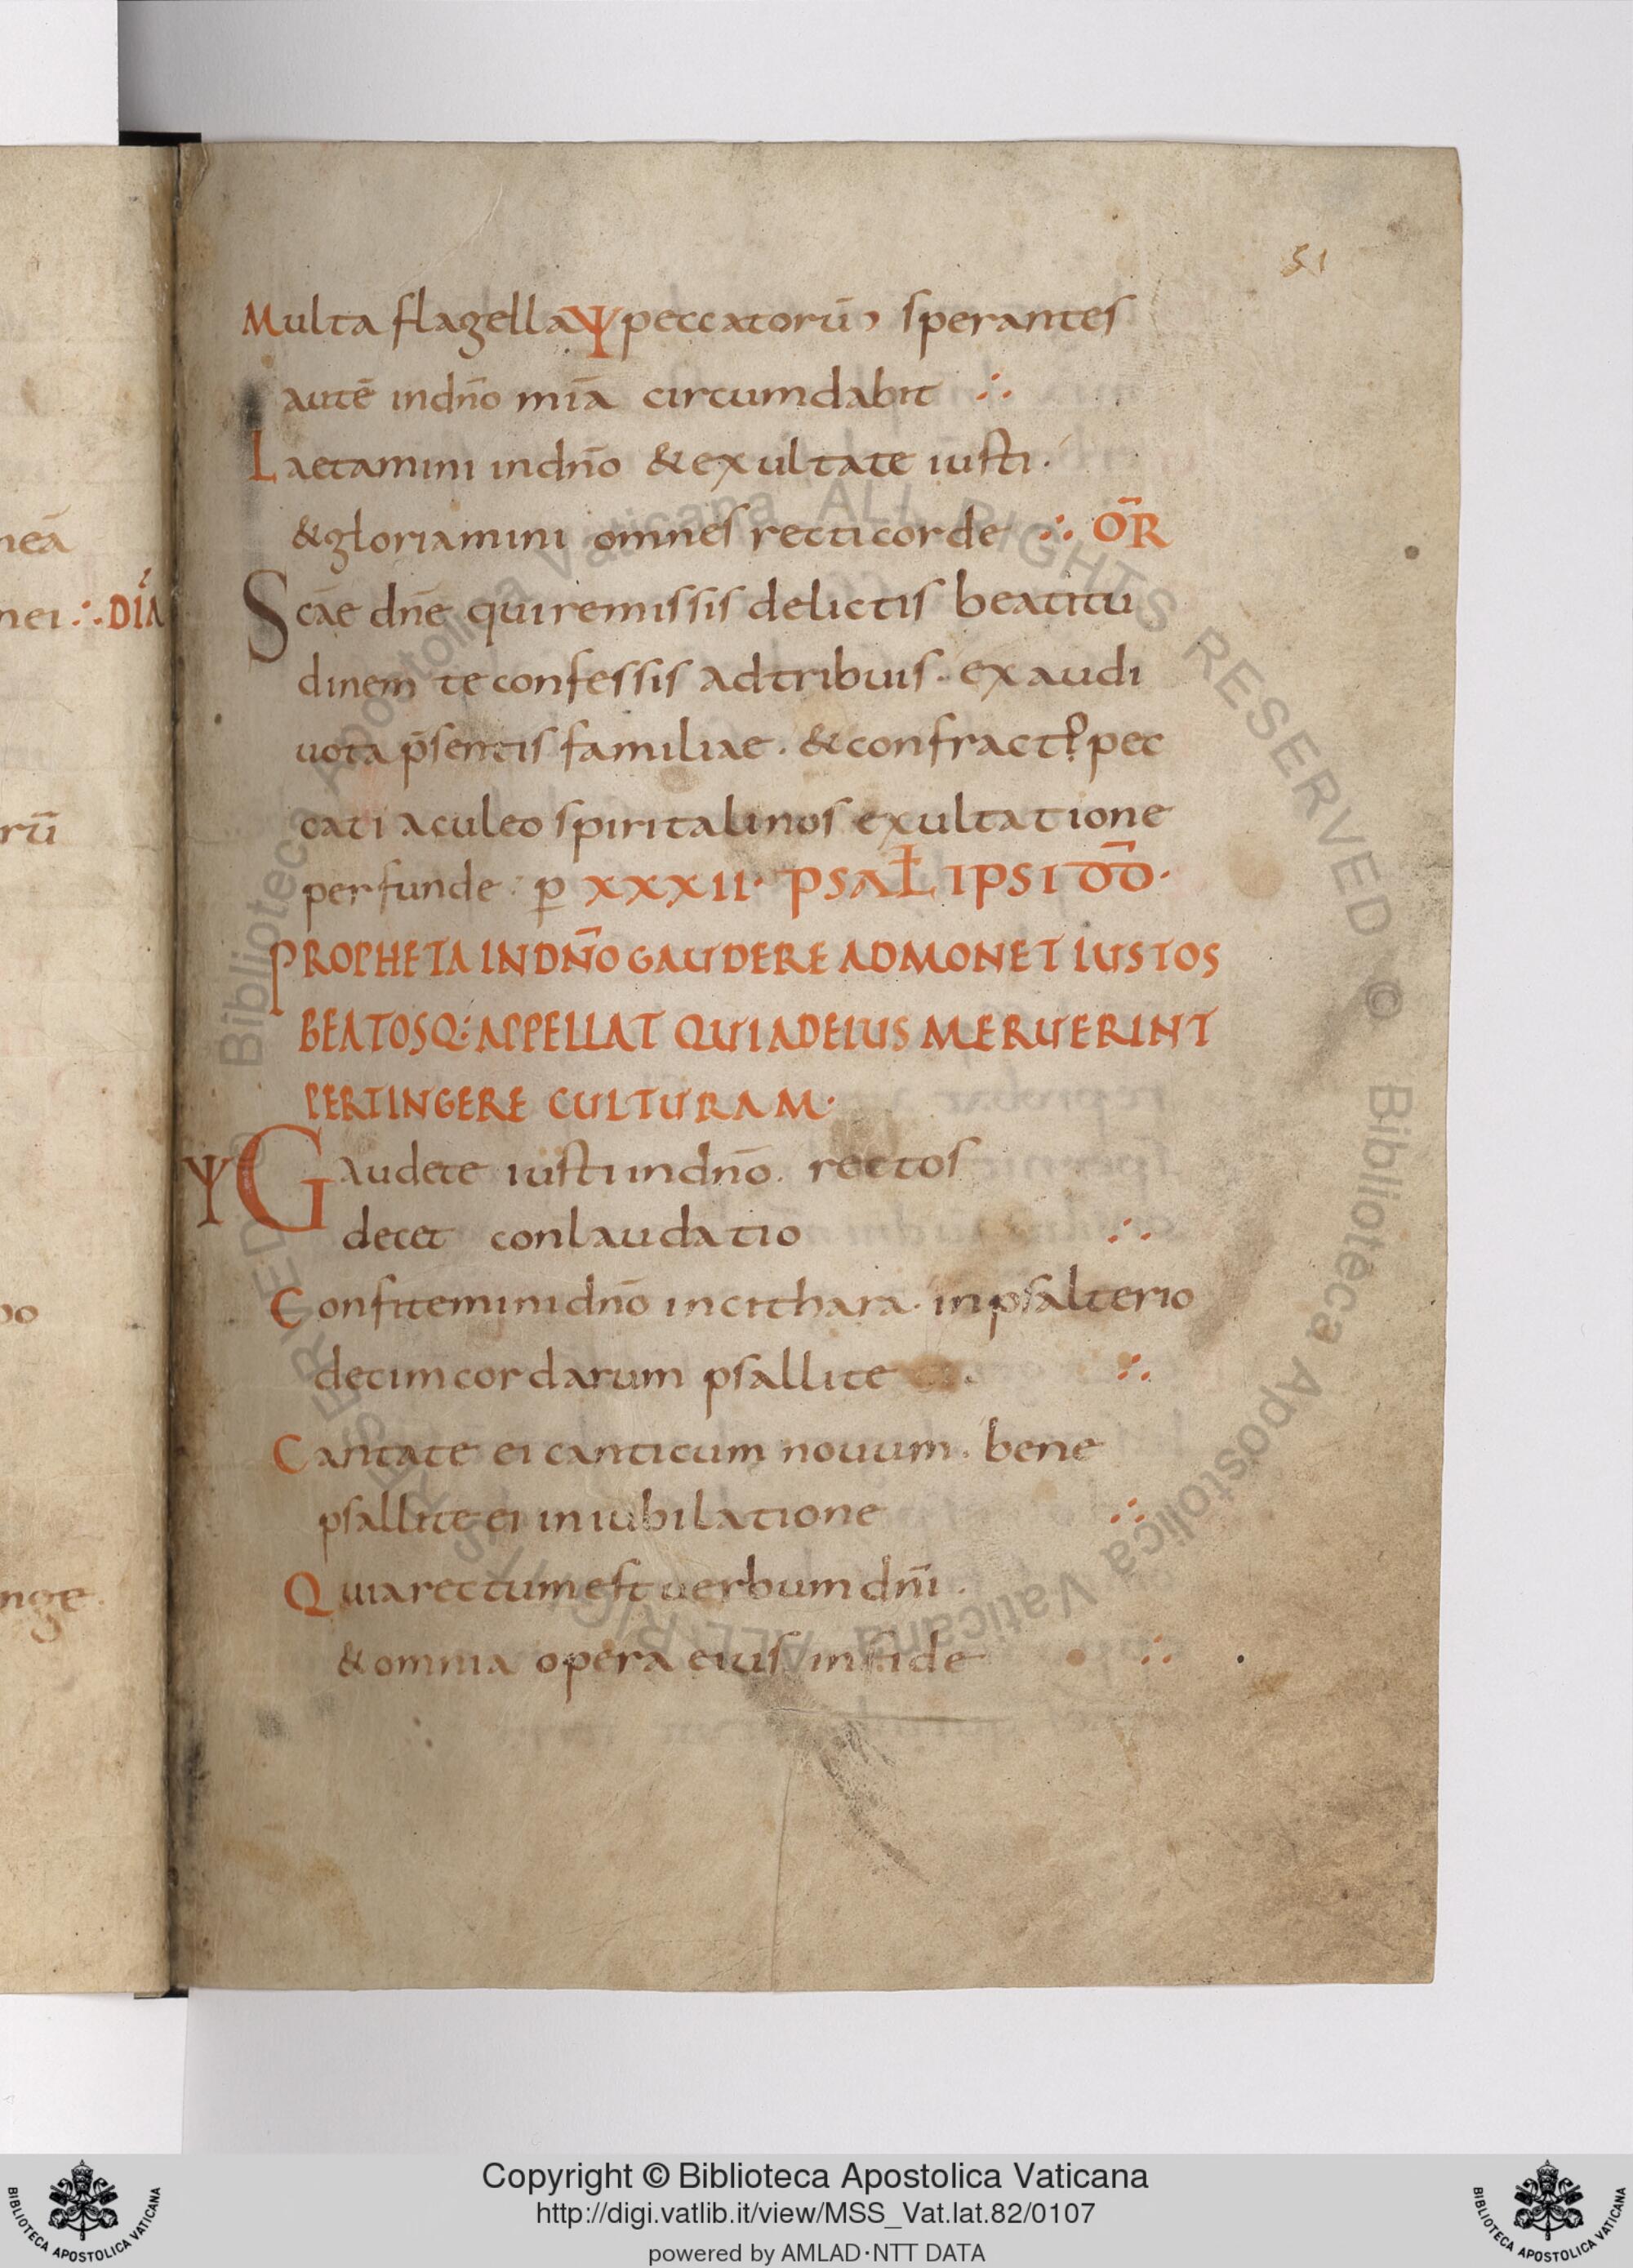 51
Multa flagellaΨpeccatorū, sperantes
autē indn̄o mīa circumdabit ∴
Laetamini indn̄o & exultate iusti.
& gloriamini omnes recti corde ∴ ŌR
Scāe dn̄e qui remissis delictis beatitu
dinem te confessis adtribuis. exaudi
uota p̄sentis familiae. & confractꝰ pec
cati aculeo spiritali nos exultatione
perfunde. p XXXII. PSAŁ IPSI DD̄.
PROPHETA IN DN̄O GAUDERE ADMONET IUSTOS
BEATOSQ: APPELLAT QUI AD EIUS MERUERINT
PERTINGERE CULTURAM.
Ψ Gaudete iusti indn̄o. rectos
decet conlaudatio ∴
Confitemini dn̄o in cithara. in psalterio
decim cordarum psallite ∴
Cantate ei canticum nouum. bene
psallite ei in iubilatione ∴
Quia rectum est uerbum dn̄i.
& omnia opera eius in fide ∴
neā
nei ∴ DIĀ
rū
po
nge.
Biblioteca Apostolica Vaticana ALL RIGHTS RESERVED ©
Biblioteca Apostolica Vaticana ALL RIGHTS RESERVED
Copyright © Biblioteca Apostolica Vaticana
http://digi.vatlib.it/view/MSS_Vat.lat.82/0107
powered by AMLAD·NTT DATA
BIBLIOTECA APOSTOLICA VATICANA
BIBLIOTECA APOSTOLICA VATICANA